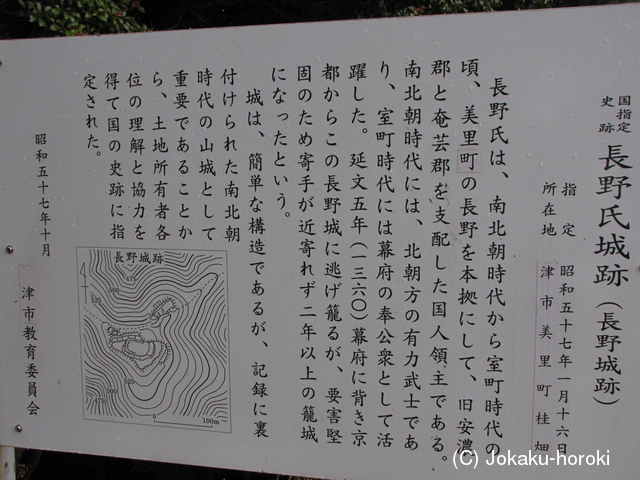 国指定
史跡
長野氏城跡（長野城跡）
指定 昭和五十七年一月十六日
所在地 津市美里町桂畑
長野氏は、南北朝時代から室町時代の
頃、美里町の長野を本拠にして、旧安濃
郡と奄芸郡を支配した国人領主である。
南北朝時代には、北朝方の有力武士であ
り、室町時代には幕府の奉公衆として活
躍した。延文五年（一三六〇）幕府に背き京
都からこの長野城に逃げ籠るが、要害堅
固のため寄手が近寄れず二年以上の籠城
になったという。
城は、簡単な構造であるが、記録に裏
付けられた南北朝
時代の山城として
重要であることか
ら、土地所有者各
位の理解と協力を
得て国の史跡に指
定された。
昭和五十七年十月
津市教育委員会
長野城跡
475
0
100m
(C) Jokaku-horoki